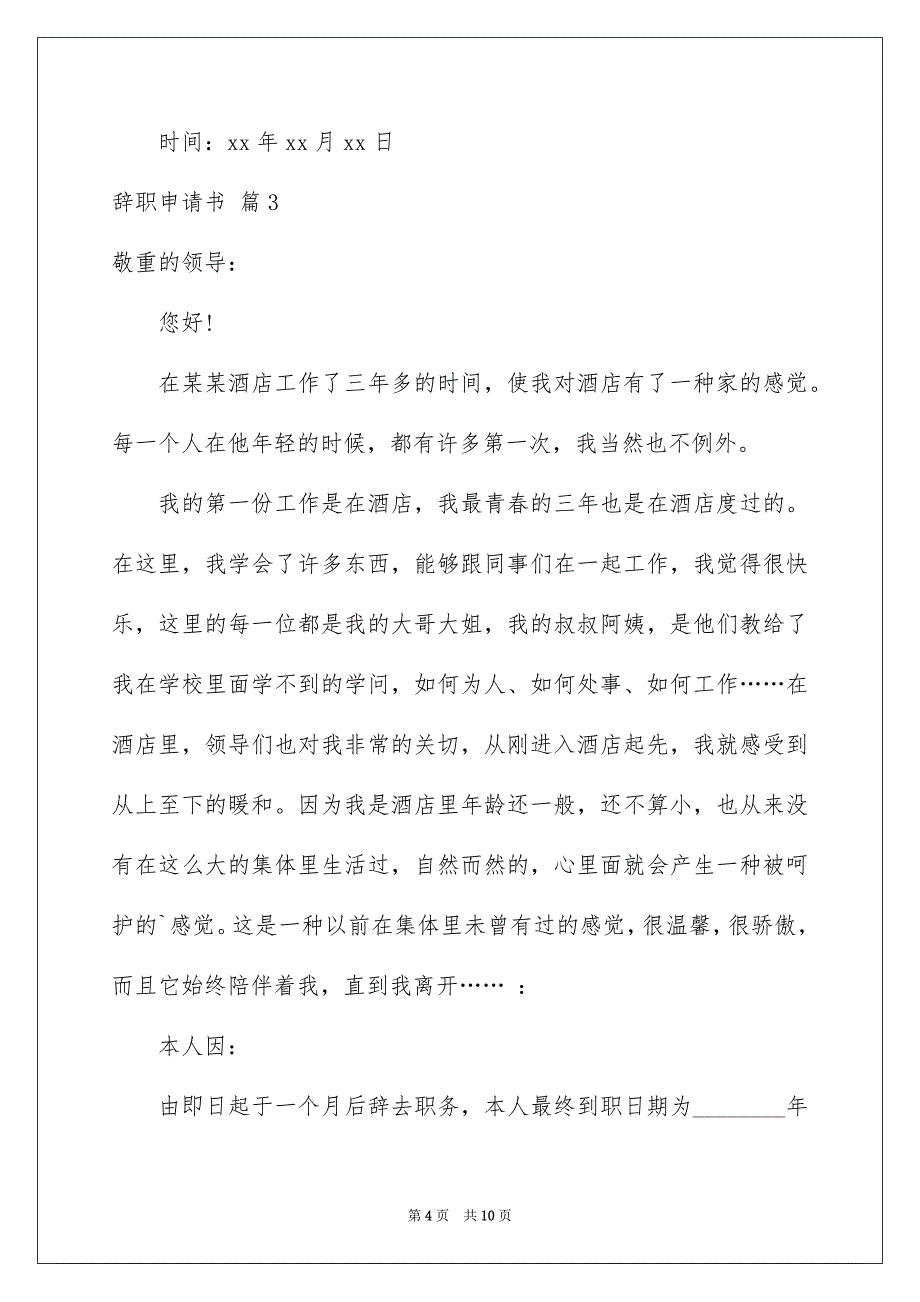 时间：xx 年 xx 月 xx 日
辞职申请书 篇 3
敬重的领导：
您好！
在某某酒店工作了三年多的时间，使我对酒店有了一种家的感觉。
每一个人在他年轻的时候，都有许多第一次，我当然也不例外。
我的第一份工作是在酒店，我最青春的三年也是在酒店度过的。
在这里，我学会了许多东西，能够跟同事们在一起工作，我觉得很快
乐，这里的每一位都是我的大哥大姐，我的叔叔阿姨，是他们教给了
我在学校里面学不到的学问，如何为人、如何处事、如何工作……在
酒店里，领导们也对我非常的关切，从刚进入酒店起先，我就感受到
从上至下的暖和。因为我是酒店里年龄还一般，还不算小，也从来没
有在这么大的集体里生活过，自然而然的，心里面就会产生一种被呵
护的`感觉。这是一种以前在集体里未曾有过的感觉，很温馨，很骄傲，
而且它始终陪伴着我，直到我离开…… ：
本人因：
由即日起于一个月后辞去职务，本人最终到职日期为________年
第 4 页 共 10 页